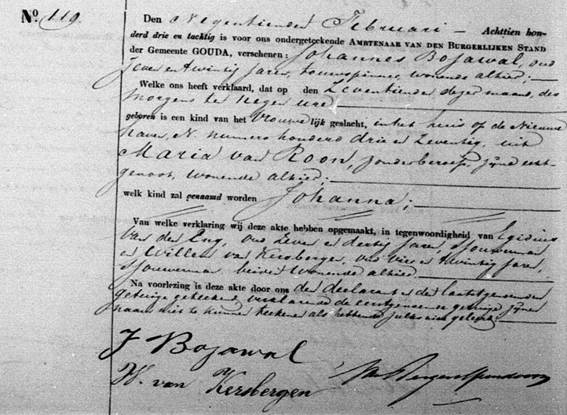 No. 119.
Den Negentienden Februari — Achttien hon-
derd drie en tachtig is voor ons ondergeteekende AMBTENAAR VAN DEN BURGERLIJKEN STAND
der Gemeente GOUDA, verschenen: Johannes Bojawal, oud
zeven en twintig jaren, touwspinner, wonende alhier;
Welke ons heeft verklaard, dat op den Zeventienden dezer maand, des
morgens te negen ure
geboren is een kind van het vrouwelijk geslacht, in het huis op de Nieuwe
haven, N numero honderd drie en zeventig, uit
Maria van Roon, zonder beroep zijne echt-
genoot, wonende alhier.
welk kind zal genaamd worden Johanna;
Van welke verklaring wij deze akte hebben opgemaakt, in tegenwoordigheid van Egidius
van den Eng, oud zeven en dertig jaren, sjouwerman
en Willem van Kersbergen, oud vier en twintig jaren,
sjouwerman beiden wonende alhier.
Na voorlezing is deze akte door ons den declarant en den laatstgenoemden
getuige geteekend, verklarende de eerstgenoemde getuige zijne
naam niet te kunnen teekenen als hebbende zulks niet geleerd.
J Bojawal
W. van Kersbergen